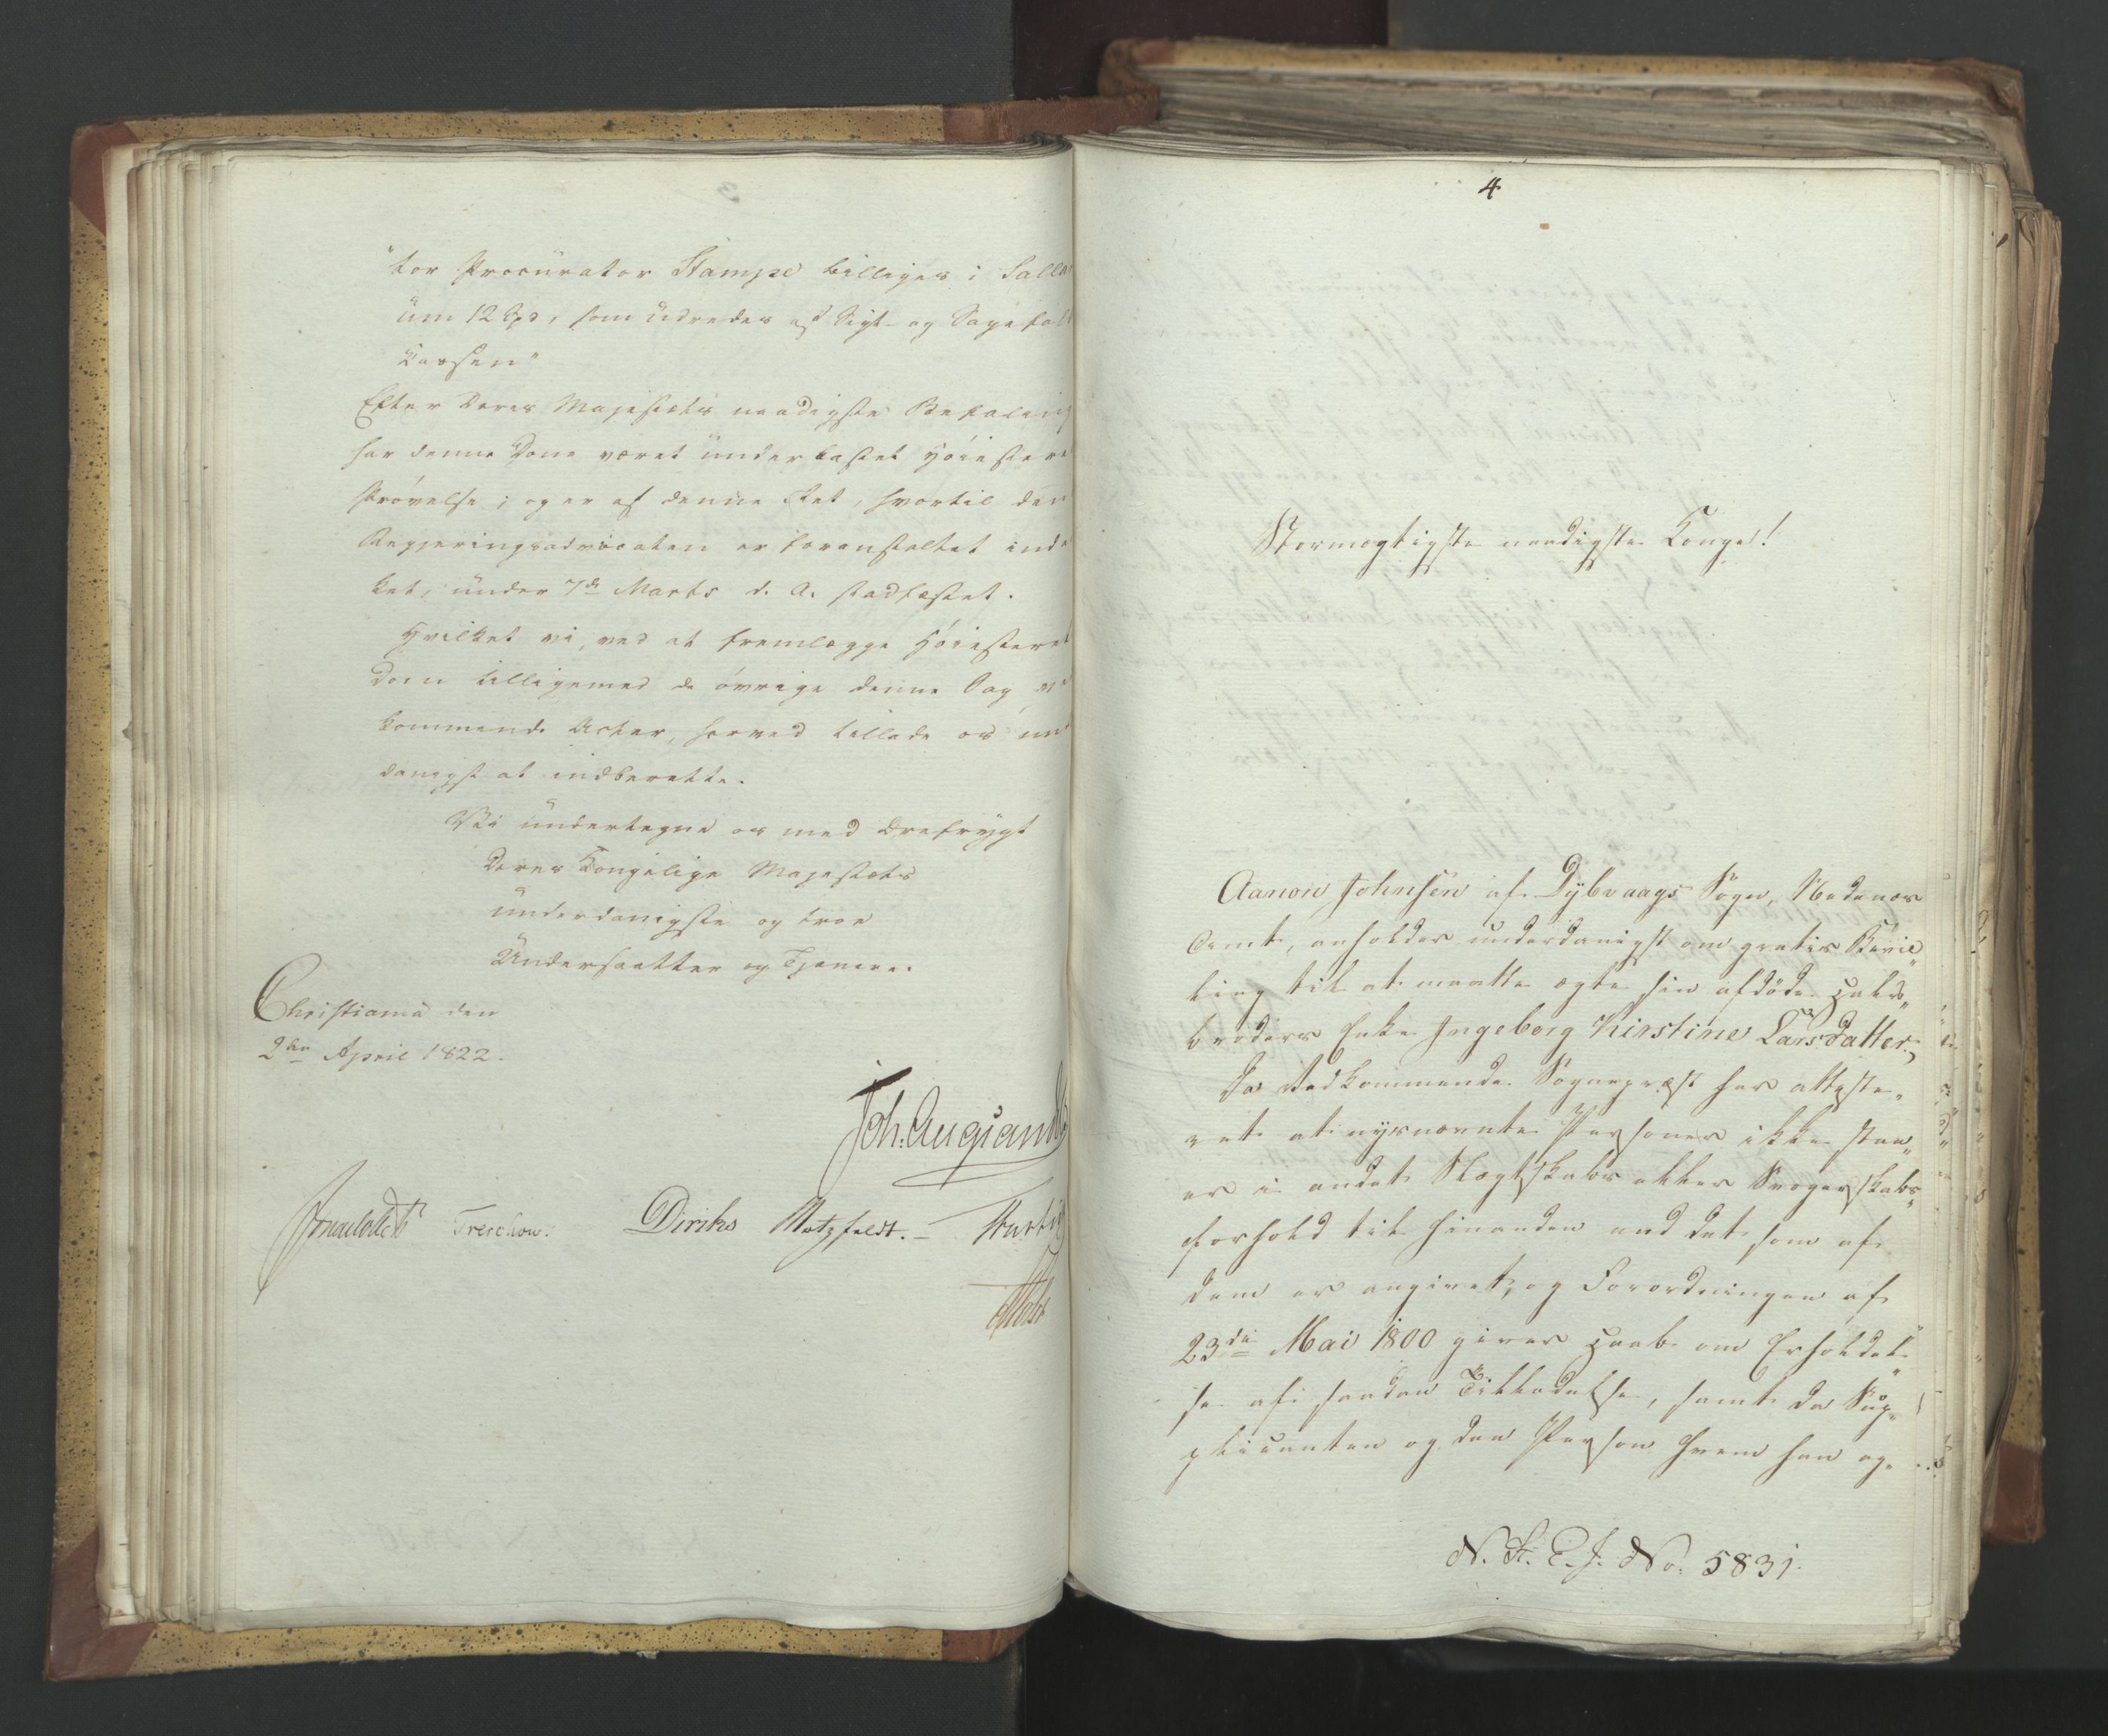 "tor Procurator Stampe billiges i Salla
um 12 Spd, som udredes af Sigt- og Sagefalds
Kassen"
Efter Deres Majestæts naadigste Befaling
har denne Dom været underkastet Høiesteret
Prøvelse; og er af denne Ret, hvortil den
Regjeringsadvocaten er foranstaltet ind
ket, under 7de Marts d. A. stadfæstet.
Hvilket vi, ved at fremlægge Høiesteret
Dom tilligemed de øvrige denne Sag ved
kommende Acter, herved tillade os un
danigst at indberette.
Vi undertegne os med Ærefrygt
Deres Kongelige Majestæts
underdanigste og troe
Undersaatter og Tjenere.
Christiania den
2den April 1822.
Treschow. Diriks Motzfeldt.
Holst
4
Stormægtigste naadigste Konge!
Aanon Johnsen af Dybvaags Sogn, Nedenæs
Amt, anholder underdanigst om gratis Bevil„
ling til at maatte ægte sin afdøde Halv„
broders Enke Ingeborg Kirstine Larsdatter,
Da Vedkommende Sognepræst har atteste„
ret at nysnævnte Personer ikke staa„
er i andet Slægtskabs eller Svogerskabs„
forhold til hinanden end det som af
dem er angivet, og Forordningen af
23de Mai 1800 giver Haab om Erholdel„
se af saadan Tilladelse, samt da Sup„
plicanten og den Person hvem han ag„
N. R. E. J. No. 5831.